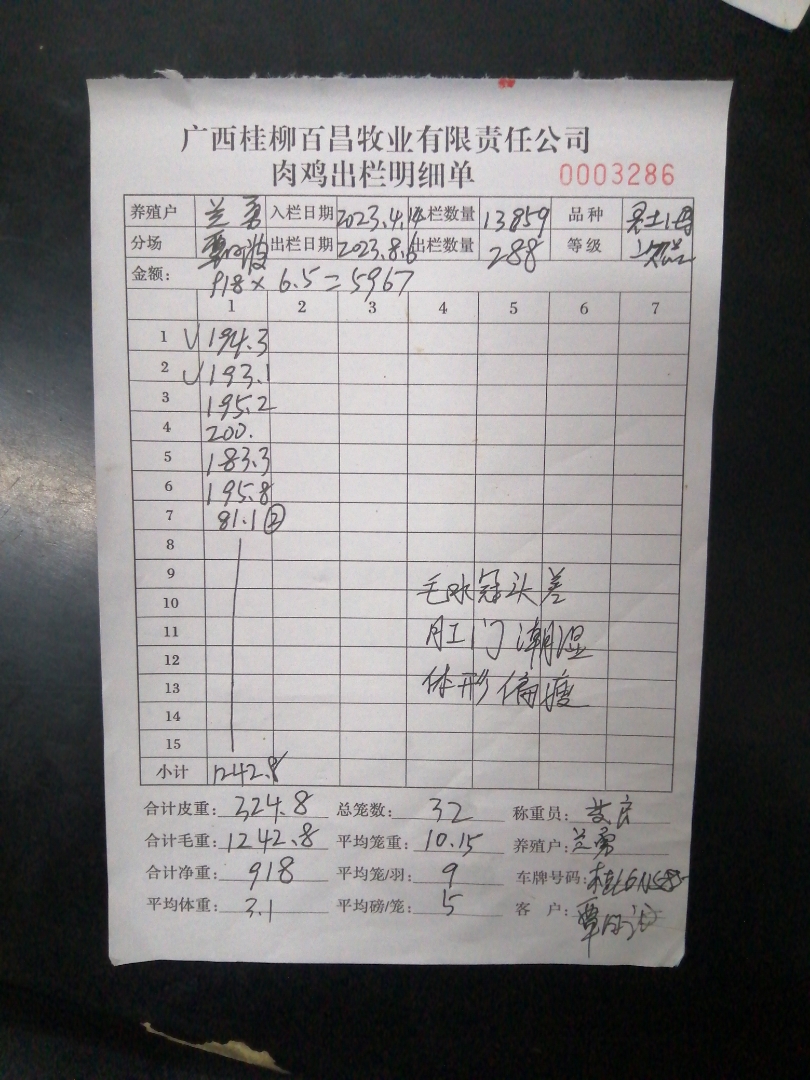 广西桂柳百昌牧业有限责任公司
肉鸡出栏明细单 0003286
养殖户 兰勇 入栏日期 2023.4.14 栏数量 13859 品种
分场 出栏日期 2023.8.6 出栏数量 288 等级
金额: 918 × 6.5 = 5967
1 2 3 4 5 6 7
1 √ 194.3
2 √ 193.1
3 195.2
4 200.
5 183.3
6 195.8
7 81.1 ②
8
9 毛水冠头差
10
11 肛门潮湿
12
13 体形偏瘦
14
15
小计 1242.8
合计皮重: 324.8 总笼数: 32 称重员:
合计毛重: 1242.8 平均笼重: 10.15 养殖户: 兰勇
合计净重: 918 平均笼/羽: 9 车牌号码:
平均体重: 3.1 平均磅/笼: 5 客 户: